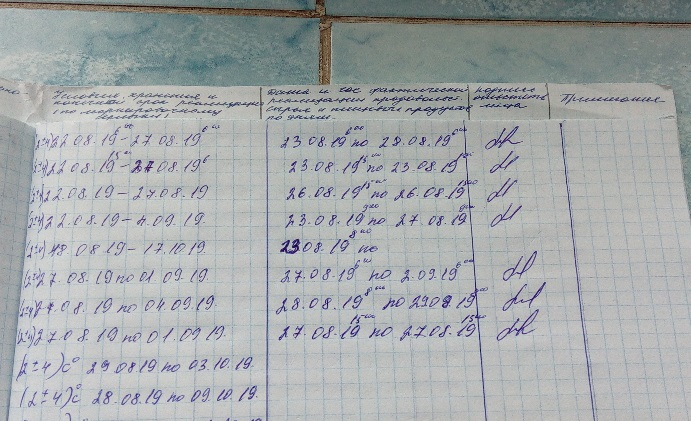 Условие хранения и
конечный срок реализации
по маркировочному
Дата и час фактической
реализации продовольст.
и пищевых продуктов
по дням.
подпись
ответств.
лица
Примечание
(2±4) 22.08.19 6 00 - 27.08.19 6 00 23.08.19 6 00 по 28.08.19 6 00
(2±4) 22.08.19 15 00 - 27.08.19 6 23.08.19 15 00 по 23.08.19
(2±4) 22.08.19 - 27.08.19 26.08.19 15 00 по 26.08.19 15 00
(2±4) 22.08.19 - 4.09.19. 23.08.19 9 00 по 27.08.19 9 00
18.08.19 - 17.10.19. 23.08.19 8 00 по
(2±4) 27.08.19 по 01.09.19. 27.08.19 6 00 по 2.09.19 6 00
(2±4) 27.08.19 по 04.09.19. 28.08.19 8 00 по 29.08.19
(2±4) 27.08.19 по 01.09.19. 27.08.19 15 00 по 27.08.19 15 00
(2±4)c° 29.08.19 по 03.10.19.
(2±4)c° 28.08.19 по 09.10.19.